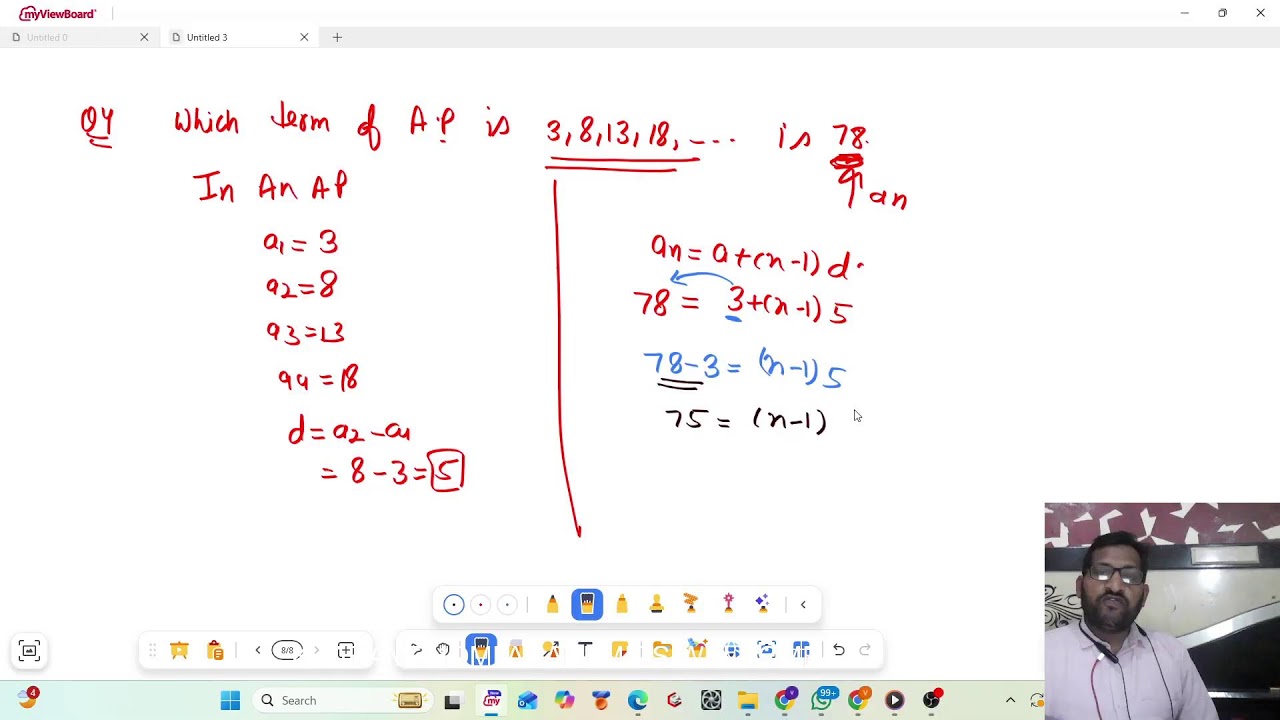 myViewBoard
Untitled 0
Untitled 3
Q4 Which term of A.P is 3, 8, 13, 18, .... is 78.
an
In An AP
a1 = 3
a2 = 8
a3 = 13
a4 = 18
d = a2 - a1
= 8 - 3 = 5
an = a + (n-1) d.
78 = 3 + (n-1) 5
78 - 3 = (n-1) 5
75 = (n-1)
8/8
4
Search
my
99+
V
V